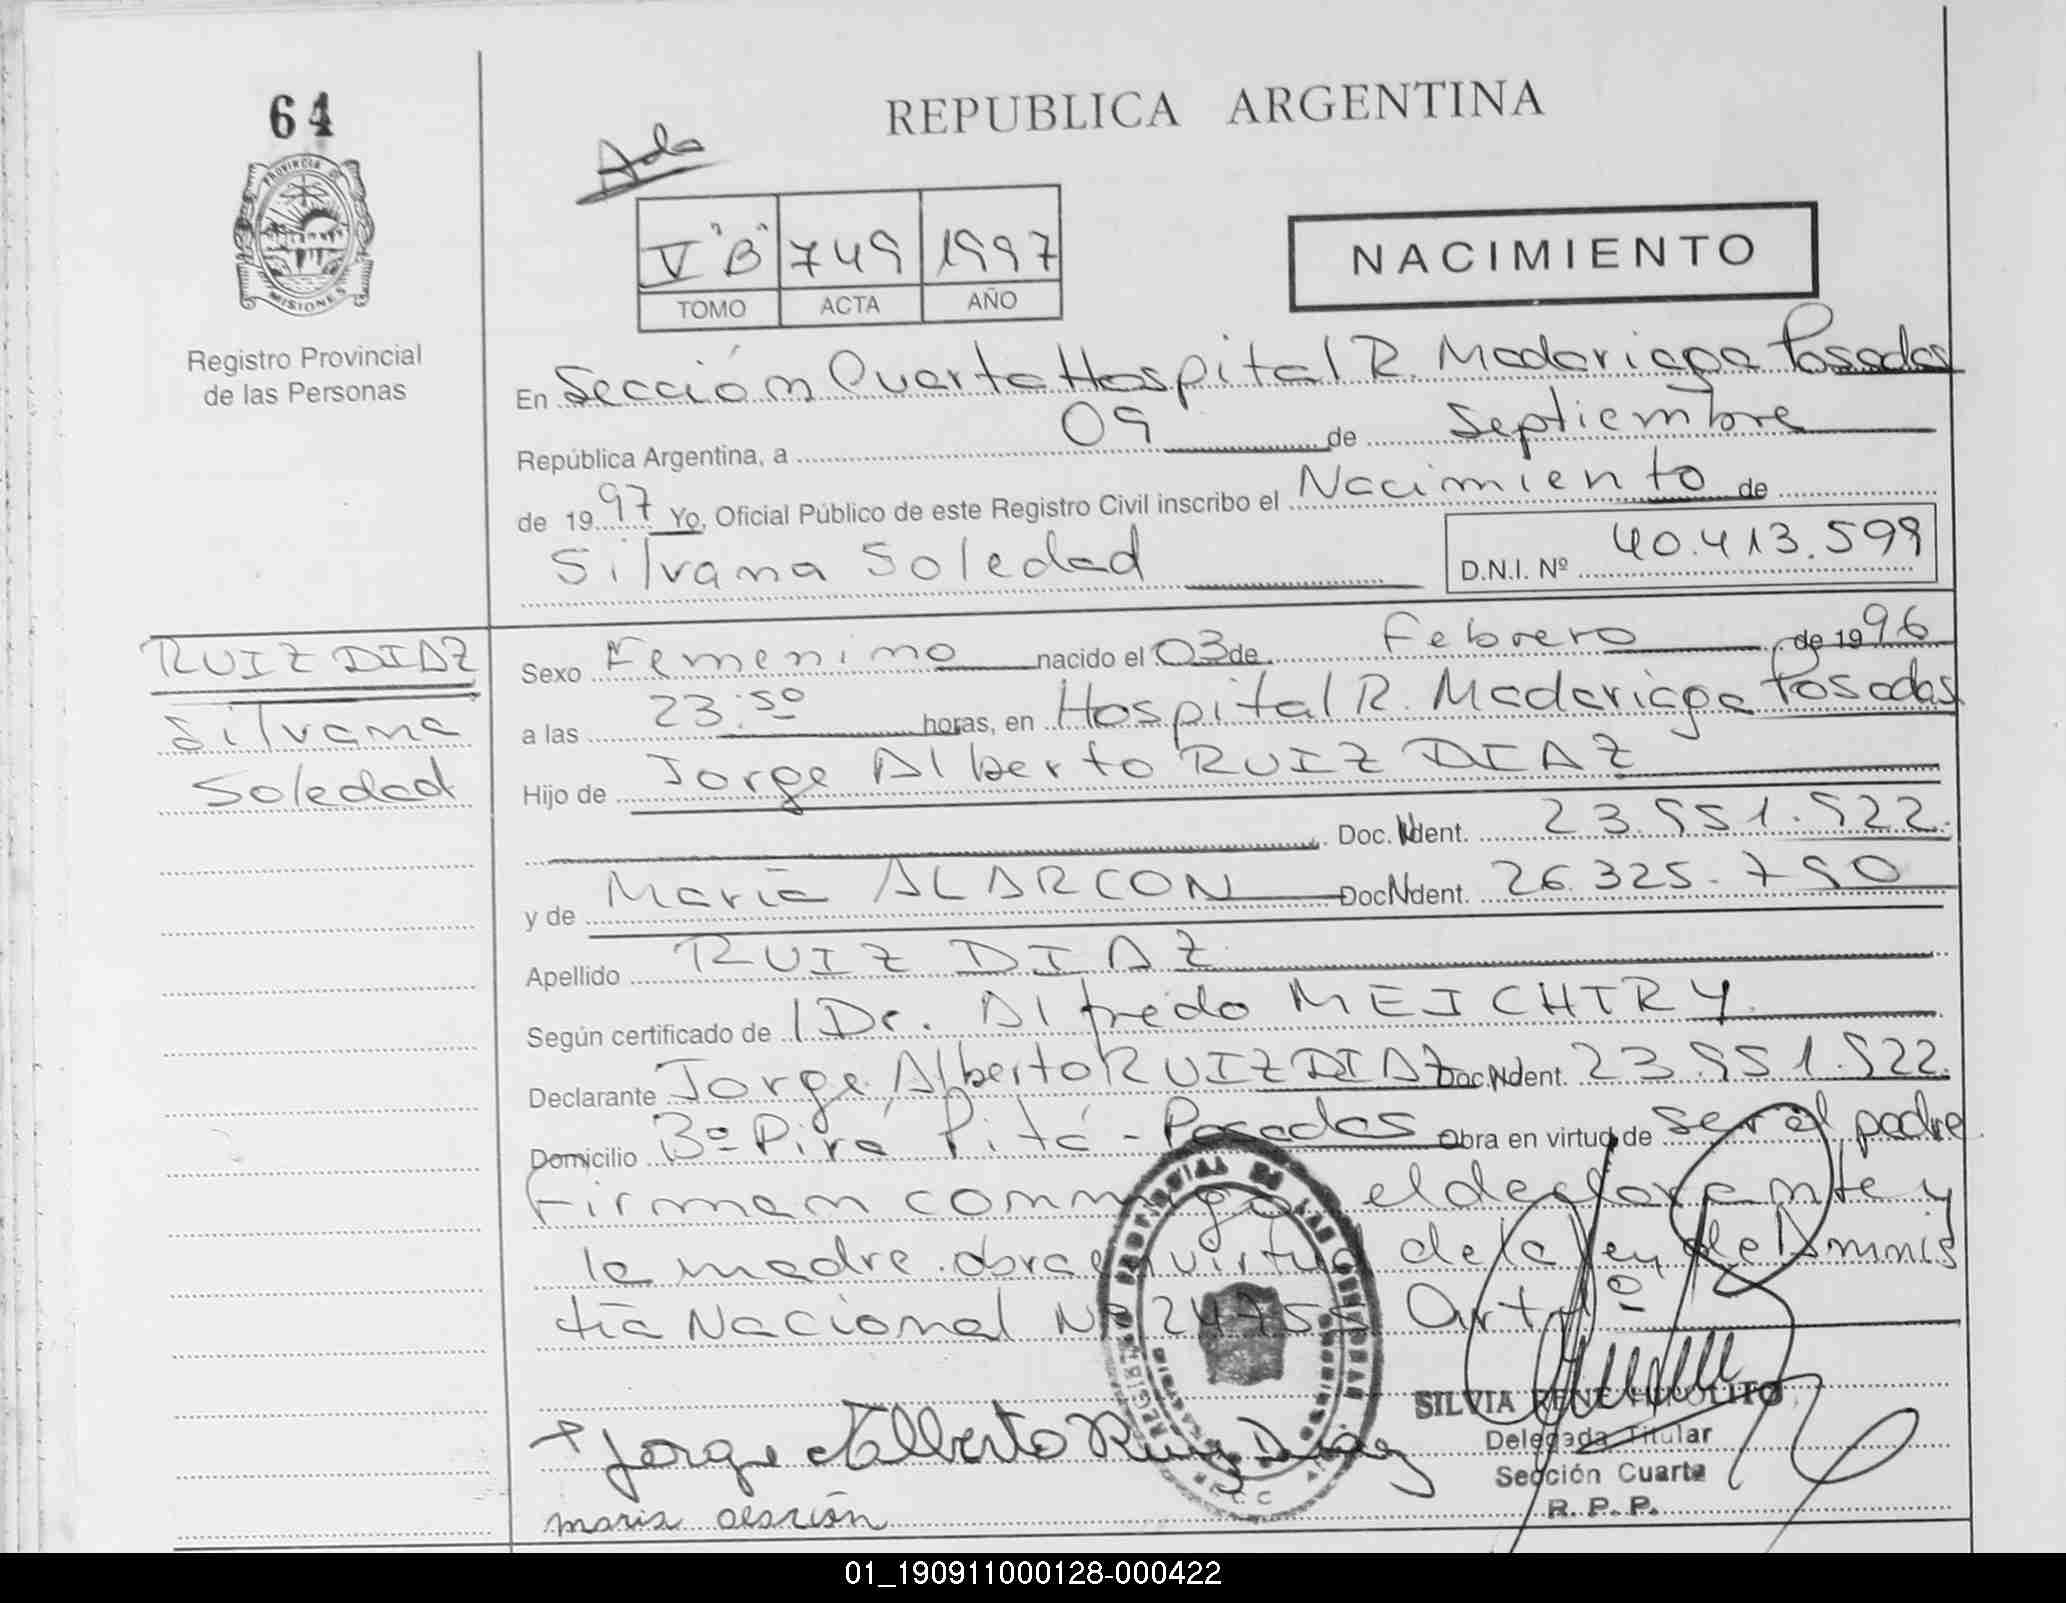 64
REPUBLICA ARGENTINA
PROVINCIA DE
MISIONES
Registro Provincial
de las Personas
Ada
V "B" 749 1997
TOMO ACTA AÑO
NACIMIENTO
En Sección Cuarta Hospital R. Madariaga Posadas
República Argentina, a 09 de Septiembre
de 1997 Yo, Oficial Público de este Registro Civil inscribo el Nacimiento de
Silvana Soledad D.N.I. Nº 40.413.599
RUIZ DIAZ
Silvana
Soledad
Sexo Femenino nacido el 03 de Febrero de 1996
a las 23:50 horas, en Hospital R. Madariaga Posadas
Hijo de Jorge Alberto RUIZ DIAZ
Doc. Ident. 23.951.922.
y de Maria ALARCON Doc Ident. 26.325.790
Apellido RUIZ DIAZ
Según certificado de Dr. Alfredo MEICHTRY
Declarante Jorge Alberto RUIZ DIAZ Doc. Ident. 23.951.922.
Domicilio Bº Pirá Pitá - Posadas Obra en virtud de ser el padre
Firman conmigo el declarante y
la madre. obra en virtud de la ley de Amnis
tia Nacional Nº 24755 Art 1º
Jorge Alberto Ruiz Diaz
maria alarcón
SILVIA RENE HIPOLITO
Delegada Titular
Sección Cuarta
R. P. P.
01_190911000128-000422